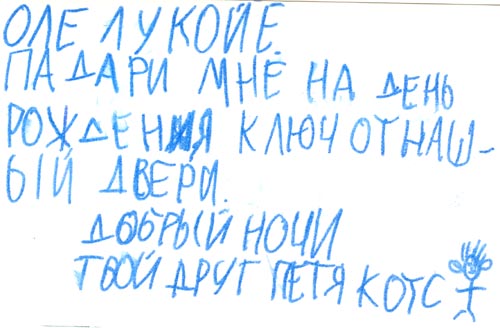 ОЛЕ ЛУКОЙЕ.
ПАДАРИ МНЕ НА ДЕНЬ
РОЖДЕНИЯ КЛЮЧ ОТ НАШ-
ЫЙ ДВЕРИ.
ДОБРЫЙ НОЧИ
ТВОЙ ДРУГ ПЕТЯ КОТС